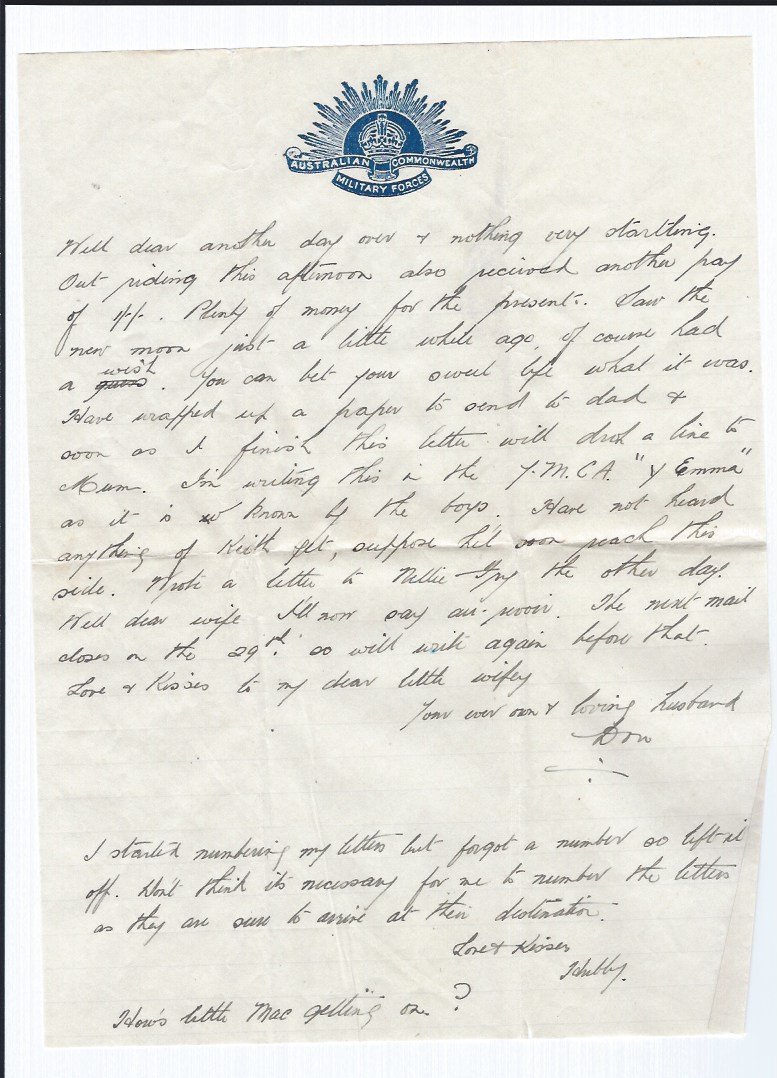 AUSTRALIAN COMMONWEALTH
MILITARY FORCES
Well dear another day over & nothing very startling.
Out riding this afternoon also recieved another pay
of . Plenty of money for the present. Saw the
new moon just a little while ago, of course had
a wish. You can bet your sweet life what it was.
Have wrapped up a paper to send to dad &
soon as I finish this letter will drop a line to
Mum. I'm writing this in the Y.M.C.A. "Y Emma"
as it is known by the boys. Have not heard
anything of Keith yet, suppose he'll soon reach this
side. Wrote a letter to Nellie the other day.
Well dear wife I'll now say au-revoir. The next mail
closes on the 29th. so will write again before that.
Love & Kisses to my dear little wifey
Your ever own & loving husband
Don
I started numbering my letters but forgot a number so left it
off. Don't think its necessary for me to number the letters
as they are sure to arrive at their destination.
Love & Kisses
Hubby.
How's little Mac getting on. ?